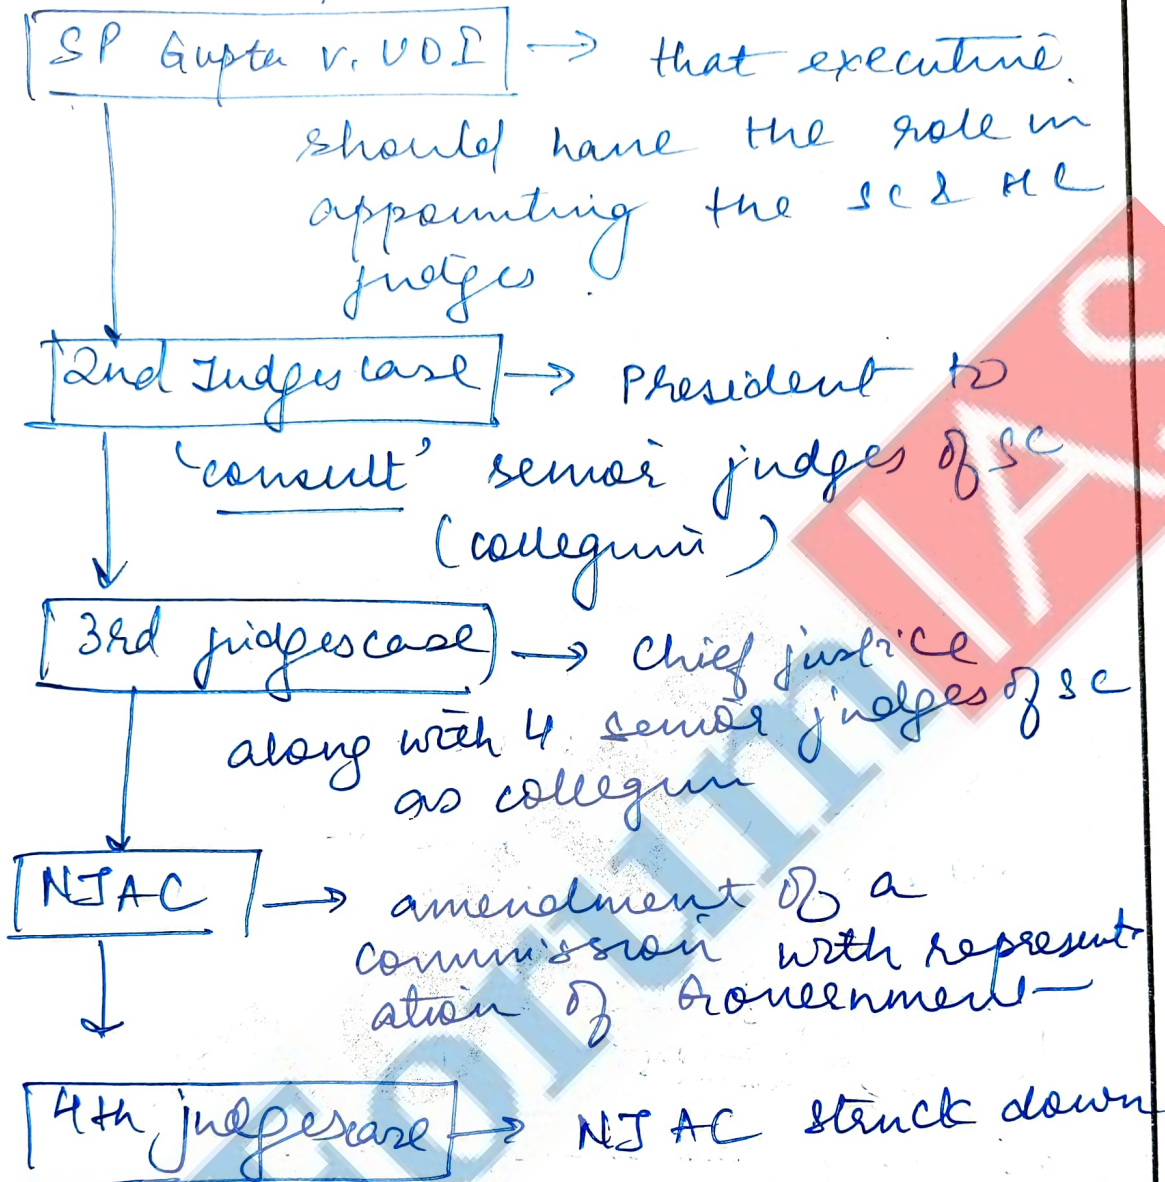 SP Gupta v. UOI → that executive
should have the role in
appointing the SC & HC
judges.
2nd Judges case → President to
'consult' senior judges of SC
(collegium)
3rd judges case → Chief justice
along with 4 senior judges of SC
as collegium
NJAC → amendment of a
commission with represent-
ation of Government
4th judges case → NJAC struck down
Forum IAS